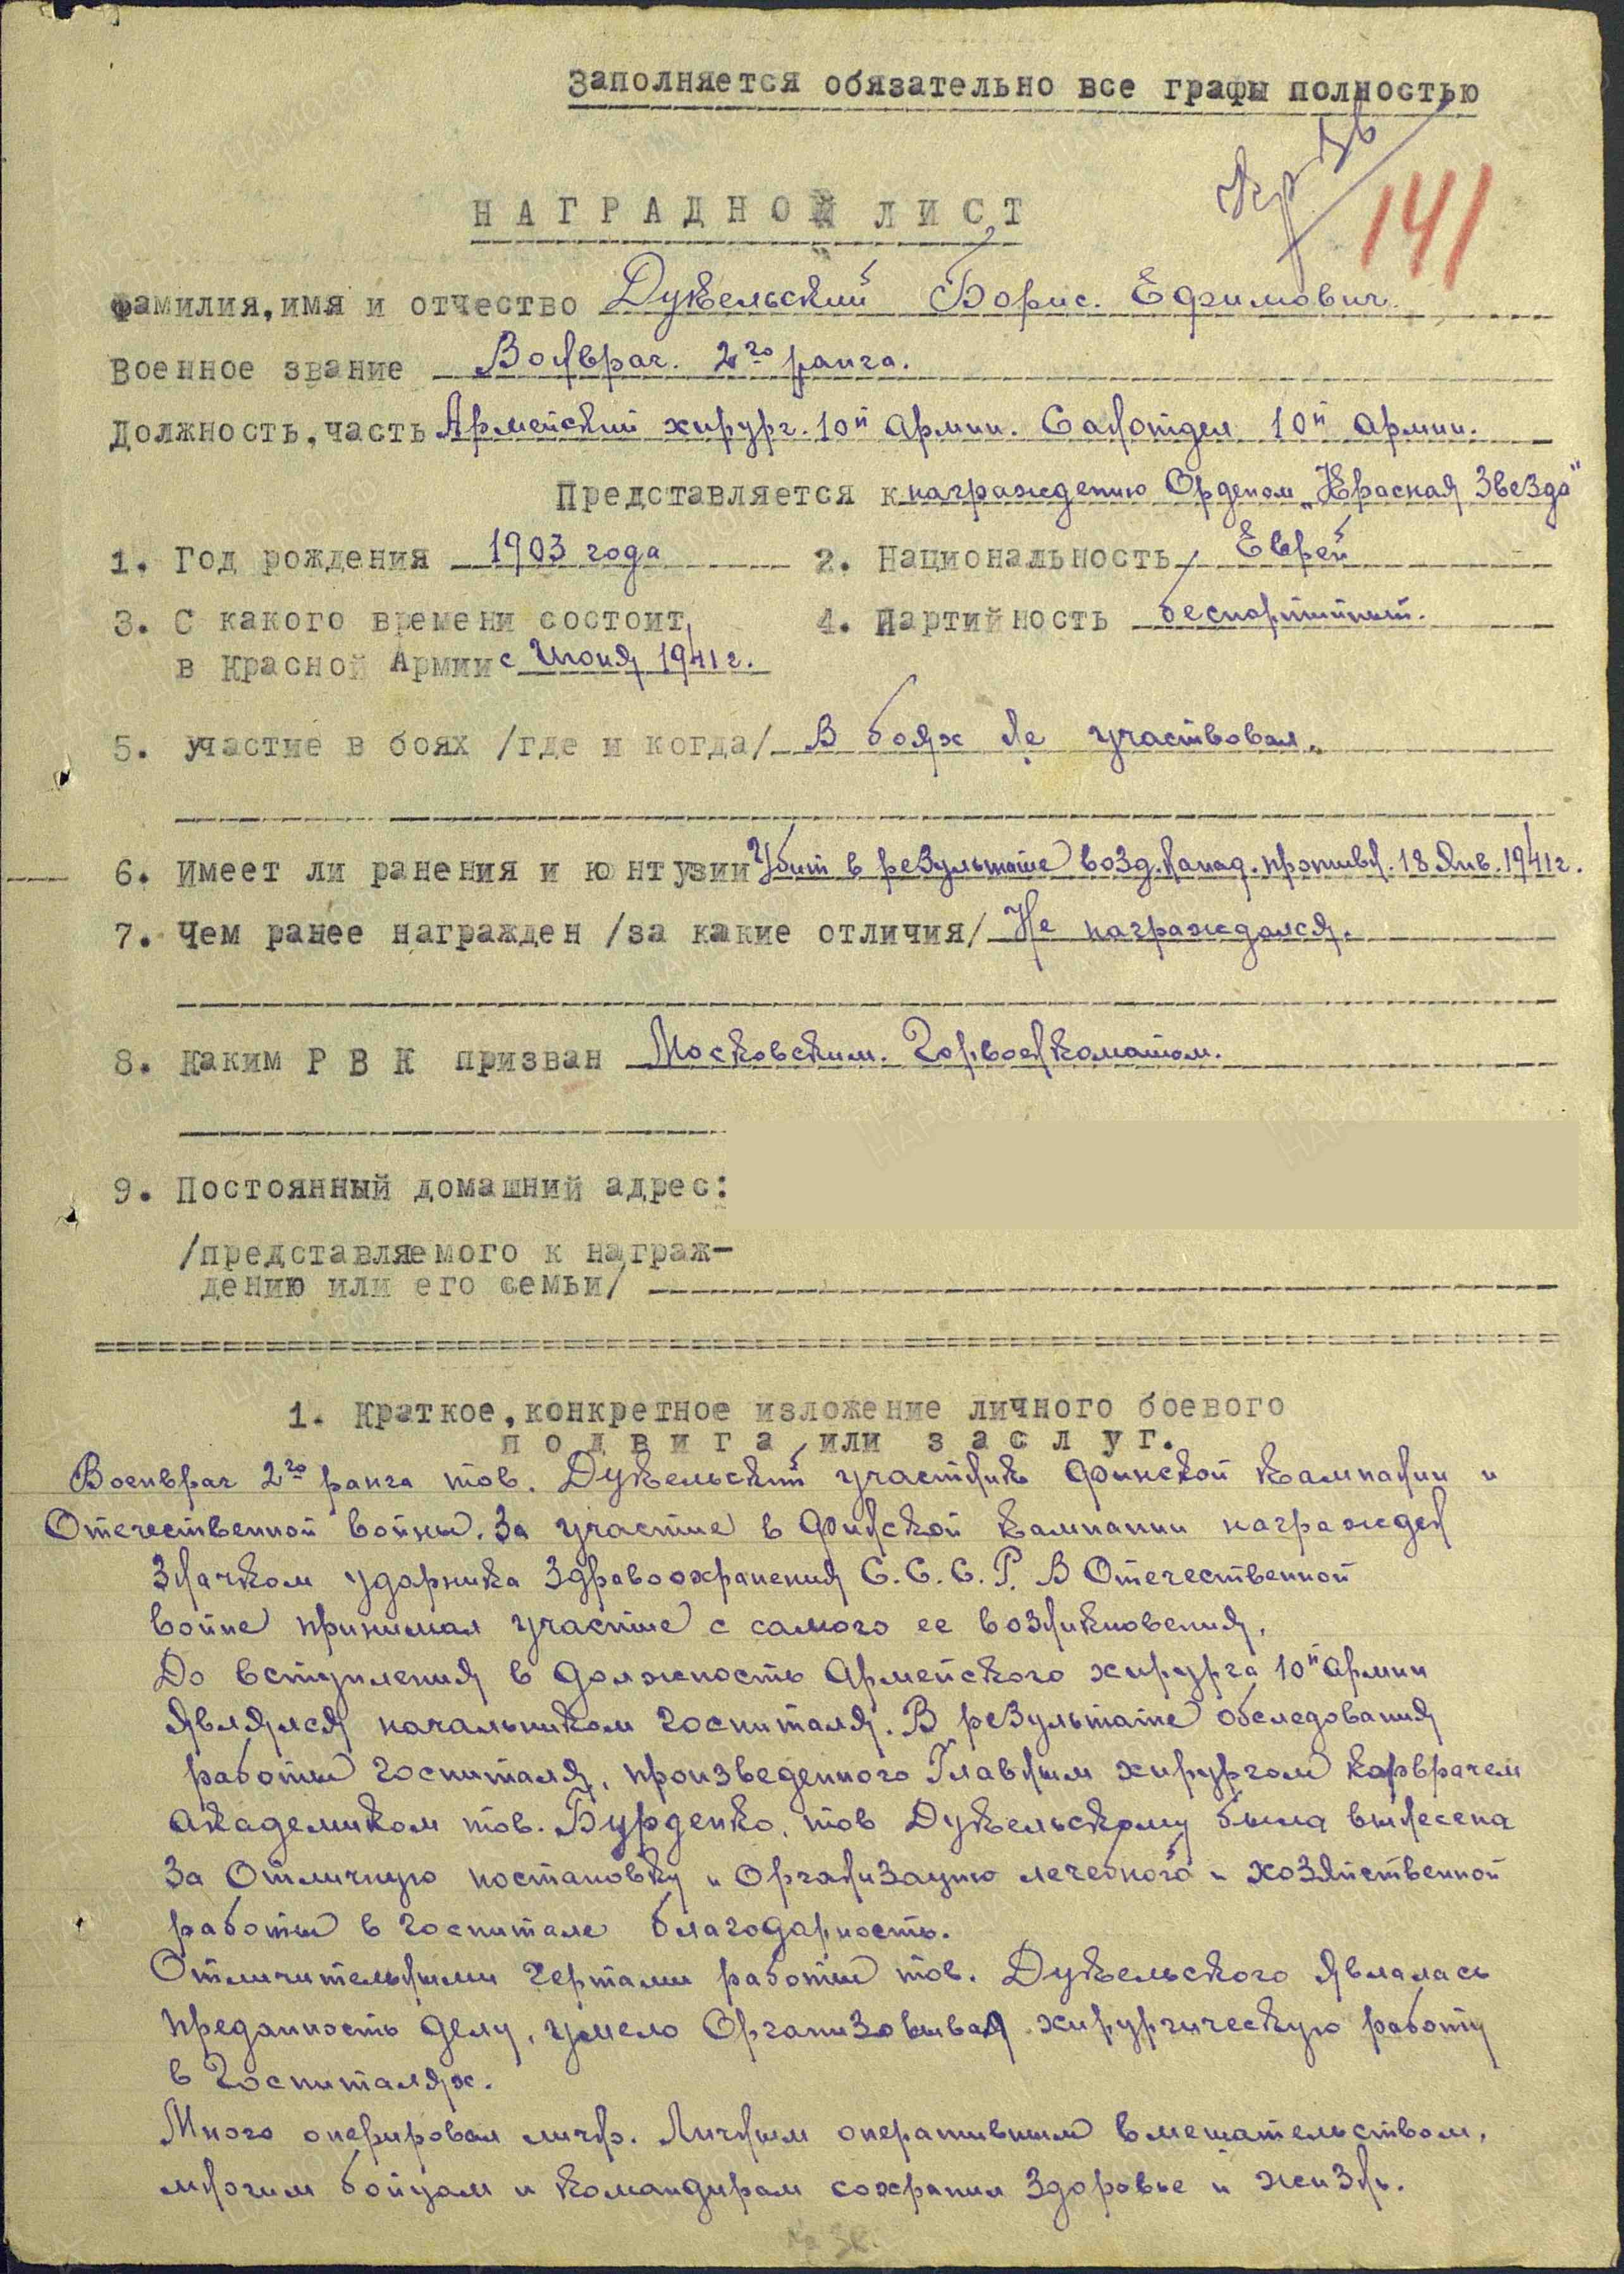 Заполняется обязательно все графы полностью
Кр Зв
141
НАГРАДНОЙ ЛИСТ
Фамилия, имя и отчество Дукельский Борис. Ефимович.
Военное звание Военврач. 2го ранга.
Должность, часть Армейский хирург. 10й Армии. Санотдел 10й Армии.
Представляется к награждению Орденом „Красная Звезда"
1. Год рождения 1903 года 2. Национальность Еврей
3. С какого времени состоит 4. Партийность беспартийный.
в Красной Армии с Июня 1941 г.
5. участие в боях /где и когда/ В боях не участвовал.
6. Имеет ли ранения и контузии Убит в результате возд. напад. противн. 18 Янв. 1941 г.
7. Чем ранее награжден /за какие отличия/ Не награждался.
8. Каким Р В К призван Московским. Горвоенкоматом.
9. Постоянный домашний адрес:
/представляемого к награж-
дению или его семьи/
1. Краткое, конкретное изложение личного боевого
подвига или заслуг.
Военврач 2го ранга тов. Дукельский участник финской кампании и
Отечественной войны. За участие в финской кампании награжден
Значком ударника Здравоохранения С.С.С.Р. В Отечественной
войне принимал участие с самого ее возникновения.
До вступления в должность Армейского хирурга 10й Армии
являлся начальником госпиталя. В результате обследования
работы госпиталя, произведенного Главным хирургом корврачем
академиком тов. Бурденко, тов Дукельскому была вынесена
за Отличную постановку и Организацию лечебного и хозяйственной
работы в госпитале благодарность.
Отличительными чертами работы тов. Дукельского являлась
преданность делу, умело Организовывая хирургическую работу
в Госпиталях.
Много оперировал лично. Личным оперативным вмешательством,
многим бойцам и командирам сохранил здоровье и жизнь.